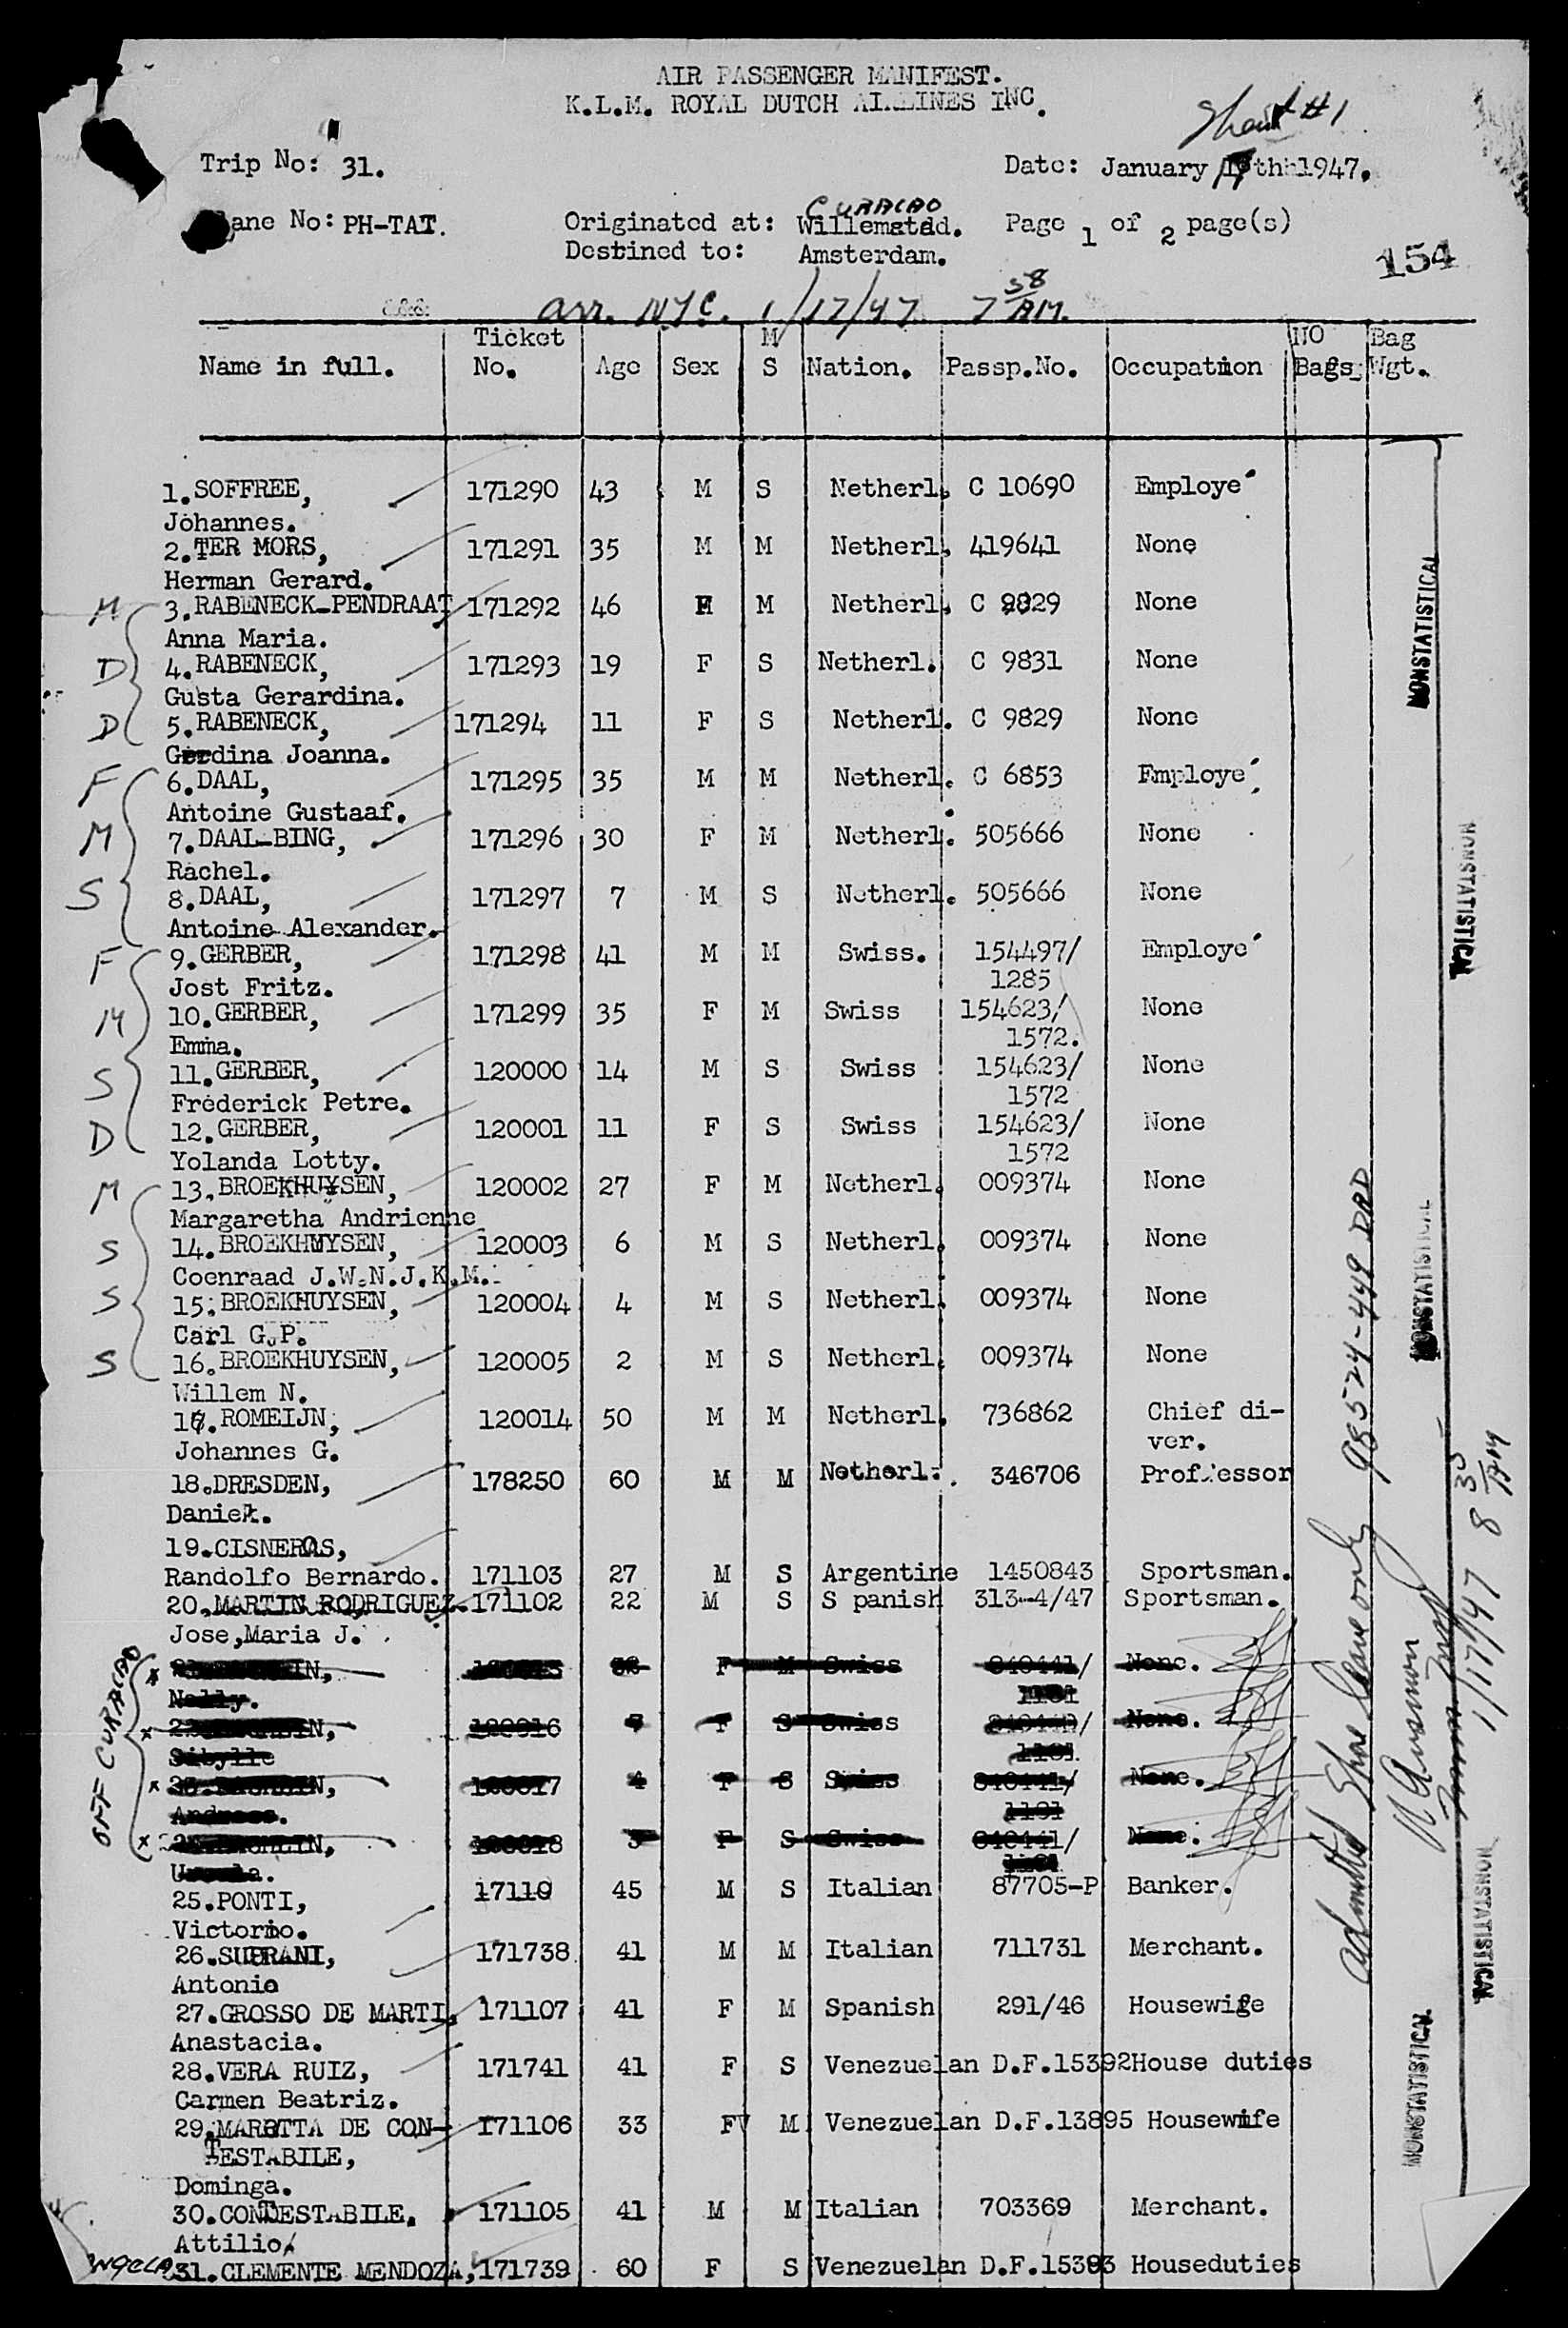 AIR PASSENGER MANIFEST.
K.L.M. ROYAL DUTCH AIRLINES INC.
Sheet #1
Trip No: 31. Date: January 17th 1947.
CURACAO
Plane No: PH-TAT. Originated at: Willemstad. Page 1 of 2 page(s)
Destined to: Amsterdam.
154
arr. N.Y.C. 1/17/47 7 58 AM.
Ticket M NO Bag
Name in full. No. Age Sex S Nation. Passp.No. Occupation Bags Wgt.
1.SOFFREE, 171290 43 M S Netherl. C 10690 Employe'
Johannes.
2.TER MORS, 171291 35 M M Netherl. 419641 None
Herman Gerard.
M 3.RABENECK-PENDRAAT 171292 46 F M Netherl. C 9829 None
Anna Maria.
D 4.RABENECK, 171293 19 F S Netherl. C 9831 None
Gusta Gerardina.
D 5.RABENECK, 171294 11 F S Netherl. C 9829 None
Gerdina Joanna.
F 6.DAAL, 171295 35 M M Netherl. C 6853 Employe'
Antoine Gustaaf.
M 7.DAAL-BING, 171296 30 F M Netherl. 505666 None
Rachel.
S 8.DAAL, 171297 7 M S Netherl. 505666 None
Antoine Alexander.
F 9.GERBER, 171298 41 M M Swiss. 154497/ Employe'
Jost Fritz. 1285
M 10.GERBER, 171299 35 F M Swiss 154623/ None
Emma. 1572.
S 11.GERBER, 120000 14 M S Swiss 154623/ None
Frederick Petre. 1572
D 12.GERBER, 120001 11 F S Swiss 154623/ None
Yolanda Lotty. 1572
M 13.BROEKHUYSEN, 120002 27 F M Netherl. 009374 None
Margaretha Andrienne
S 14.BROEKHUYSEN, 120003 6 M S Netherl. 009374 None
Coenraad J.W.N.J.K.M.
S 15.BROEKHUYSEN, 120004 4 M S Netherl. 009374 None
Carl G.P.
S 16.BROEKHUYSEN, 120005 2 M S Netherl. 009374 None
Willem N.
17.ROMEIJN, 120014 50 M M Netherl. 736862 Chief di-
Johannes G. ver.
18.DRESDEN, 178250 60 M M Netherl. 346706 Professor
Daniel.
19.CISNEROS,
Randolfo Bernardo. 171103 27 M S Argentine 1450843 Sportsman.
20.MARTIN RODRIGUEZ. 171102 22 M S S panish 313-4/47 Sportsman.
Jose,Maria J.
OFF CURACAO
F M Swiss None.
Nelly.
7 F S Swiss None.
Sibylle
4 F S Swiss None.
Andreas.
3 F S Swiss None.
Ursula.
25.PONTI, 17110 45 M S Italian 87705-P Banker.
Victorio.
26.SUPRANI, 171738 41 M M Italian 711731 Merchant.
Antonio
27.GROSSO DE MARTI, 171107 41 F M Spanish 291/46 Housewife
Anastacia.
28.VERA RUIZ, 171741 41 F S Venezuelan D.F.15392 House duties
Carmen Beatriz.
29.MAROTTA DE CON- 171106 33 F M Venezuelan D.F.13895 Housewife
TESTABILE,
Dominga.
30.CONTESTABILE. 171105 41 M M Italian 703369 Merchant.
Attilio
ANGELA 31.CLEMENTE MENDOZA, 171739 60 F S Venezuelan D.F.15393 Houseduties
NONSTATISTICAL
NONSTATISTICAL
NONSTATISTICAL
NONSTATISTICAL
NONSTATISTICAL
Admitted Shore leave only 98524-449 DRD
1/17/47 8 35 AM